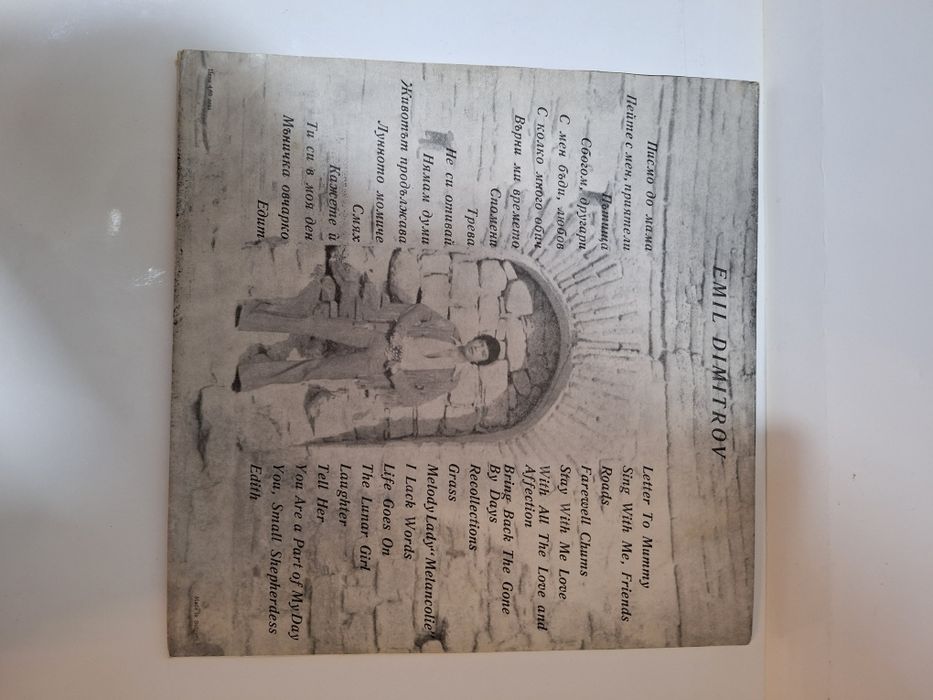 EMIL DIMITROV
Писмо до мама
Пейте с мен, приятели
Пътища
Сбогом, другари
С мен бъди, любов
С колко много обич
Върни ми времето
Спомени
Трева
Не си отивай
Нямам думи
Животът продължава
Лунното момиче
Смях
Кажете ѝ
Ти си в моя ден
Мъничка овчарко
Едит
Letter To Mummy
Sing With Me, Friends
Roads
Farewell Chums
Stay With Me Love
With All The Love and
Affection
Bring Back The Gone
By Days
Recollections
Grass
Melody Lady "Melancolie"
I Lack Words
Life Goes On
The Lunar Girl
Laughter
Tell Her
You Are a Part of My Day
You, Small Shepherdess
Edith